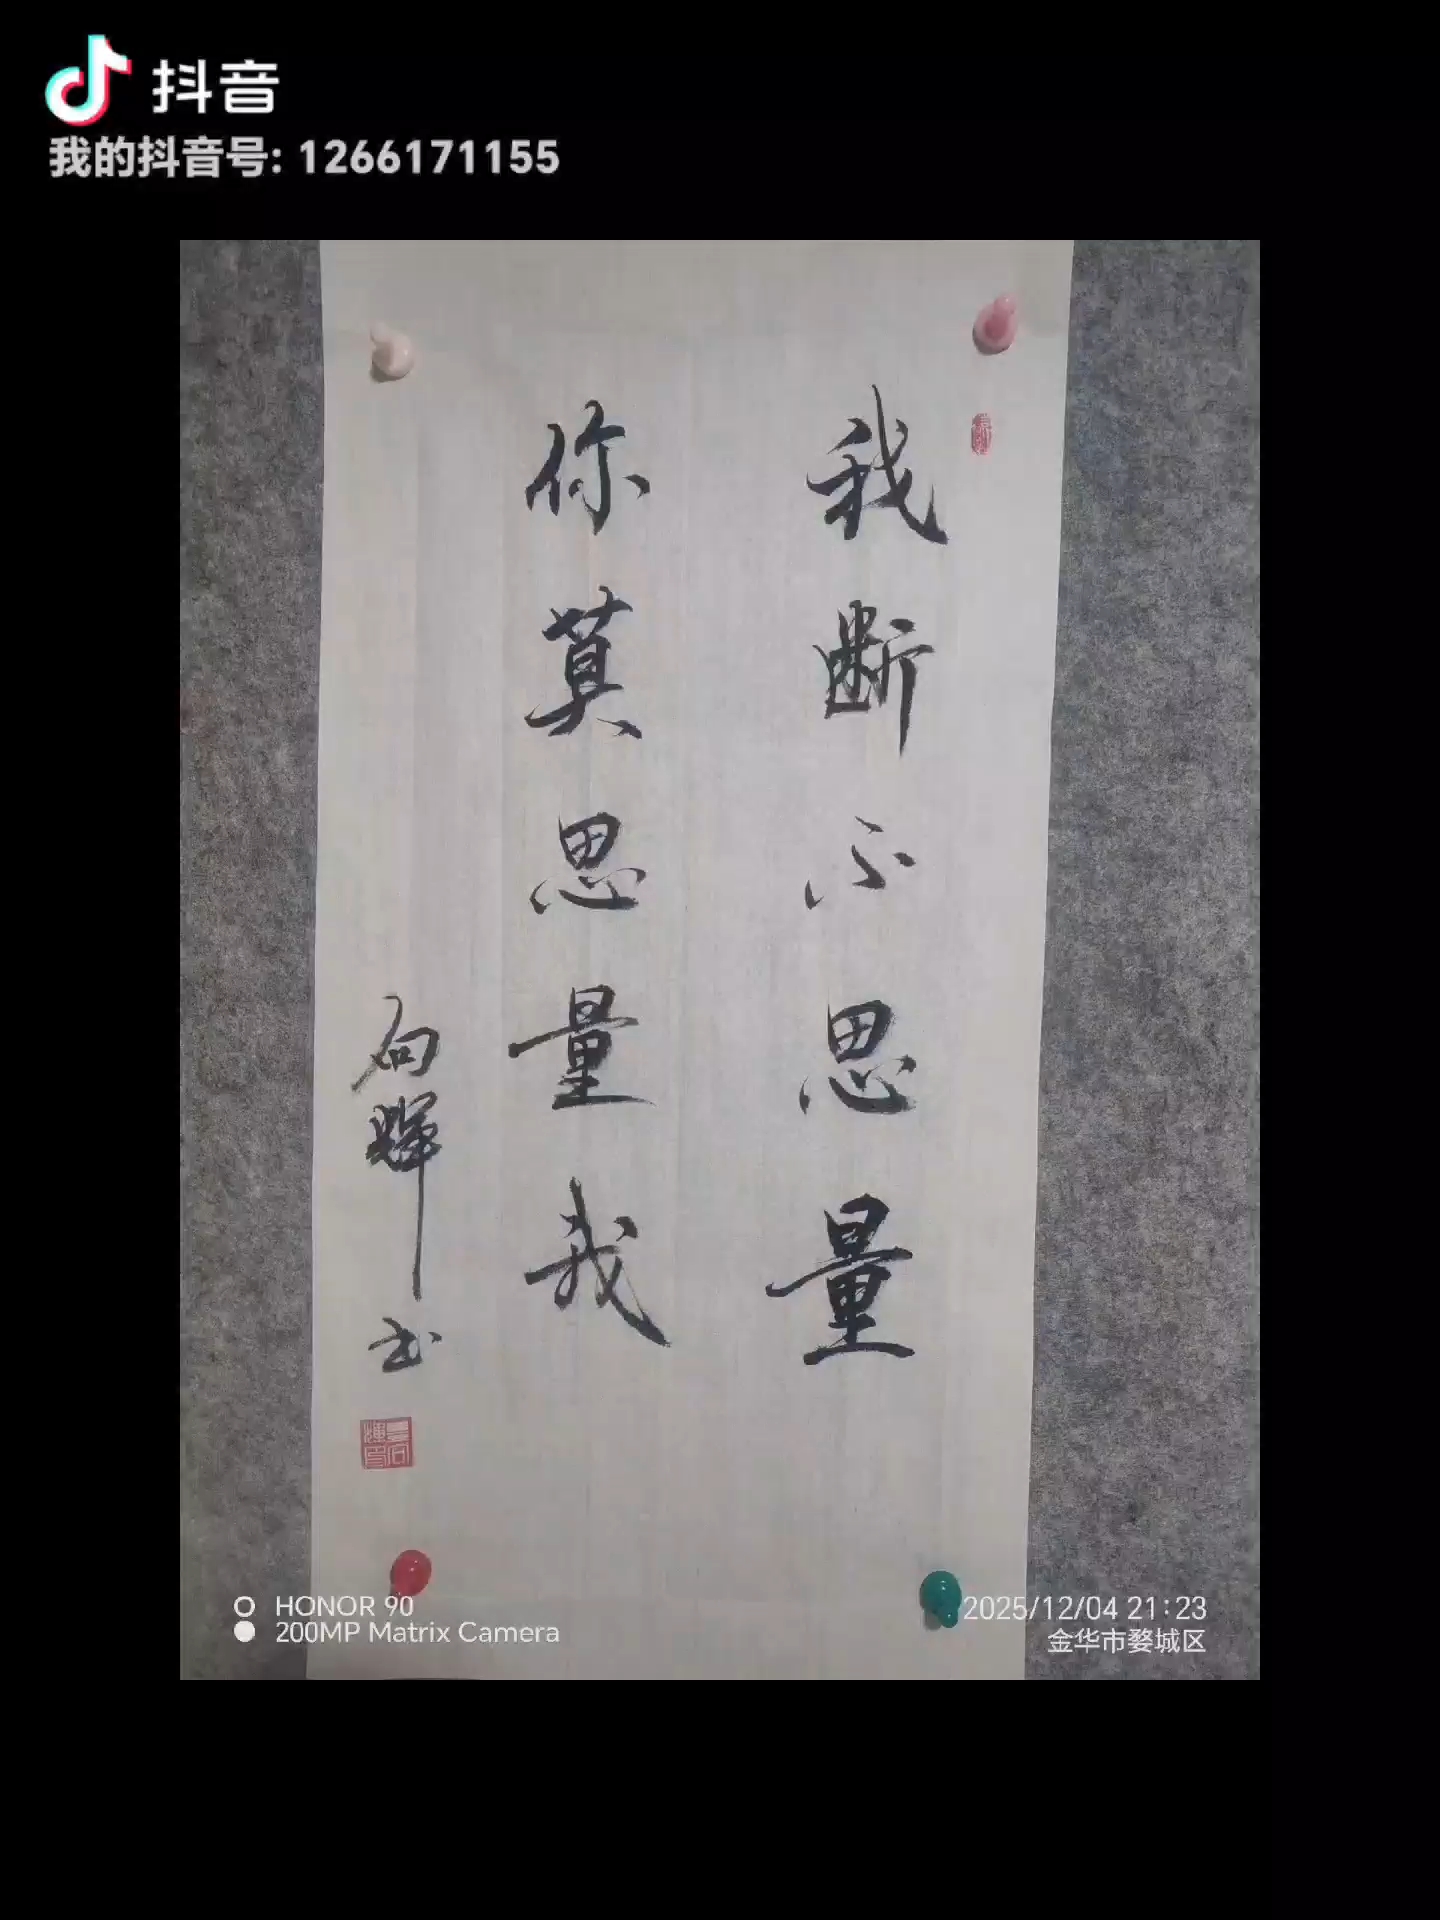 抖音
我的抖音号: 1266171155
我断不思量
你莫思量我
向辉书
HONOR 90
200MP Matrix Camera
2025/12/04 21:23
金华市婺城区